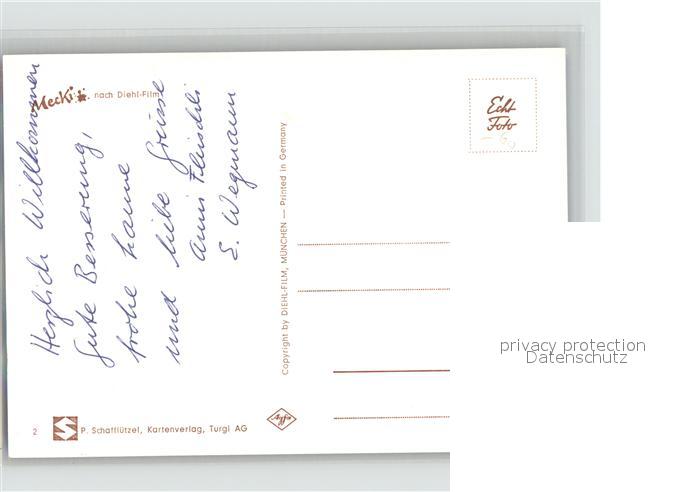 Mecki nach Diehl-Film
Herzlich Willkommen
Gute Besserung,
frohe Laune
und liebe Grüsse
Anni Fleischli
E. Wegmann
Copyright by DIEHL-FILM, MÜNCHEN — Printed in Germany
Echt
Foto
2
P. Schafflützel, Kartenverlag, Turgi AG
Agfa
privacy protection
Datenschutz